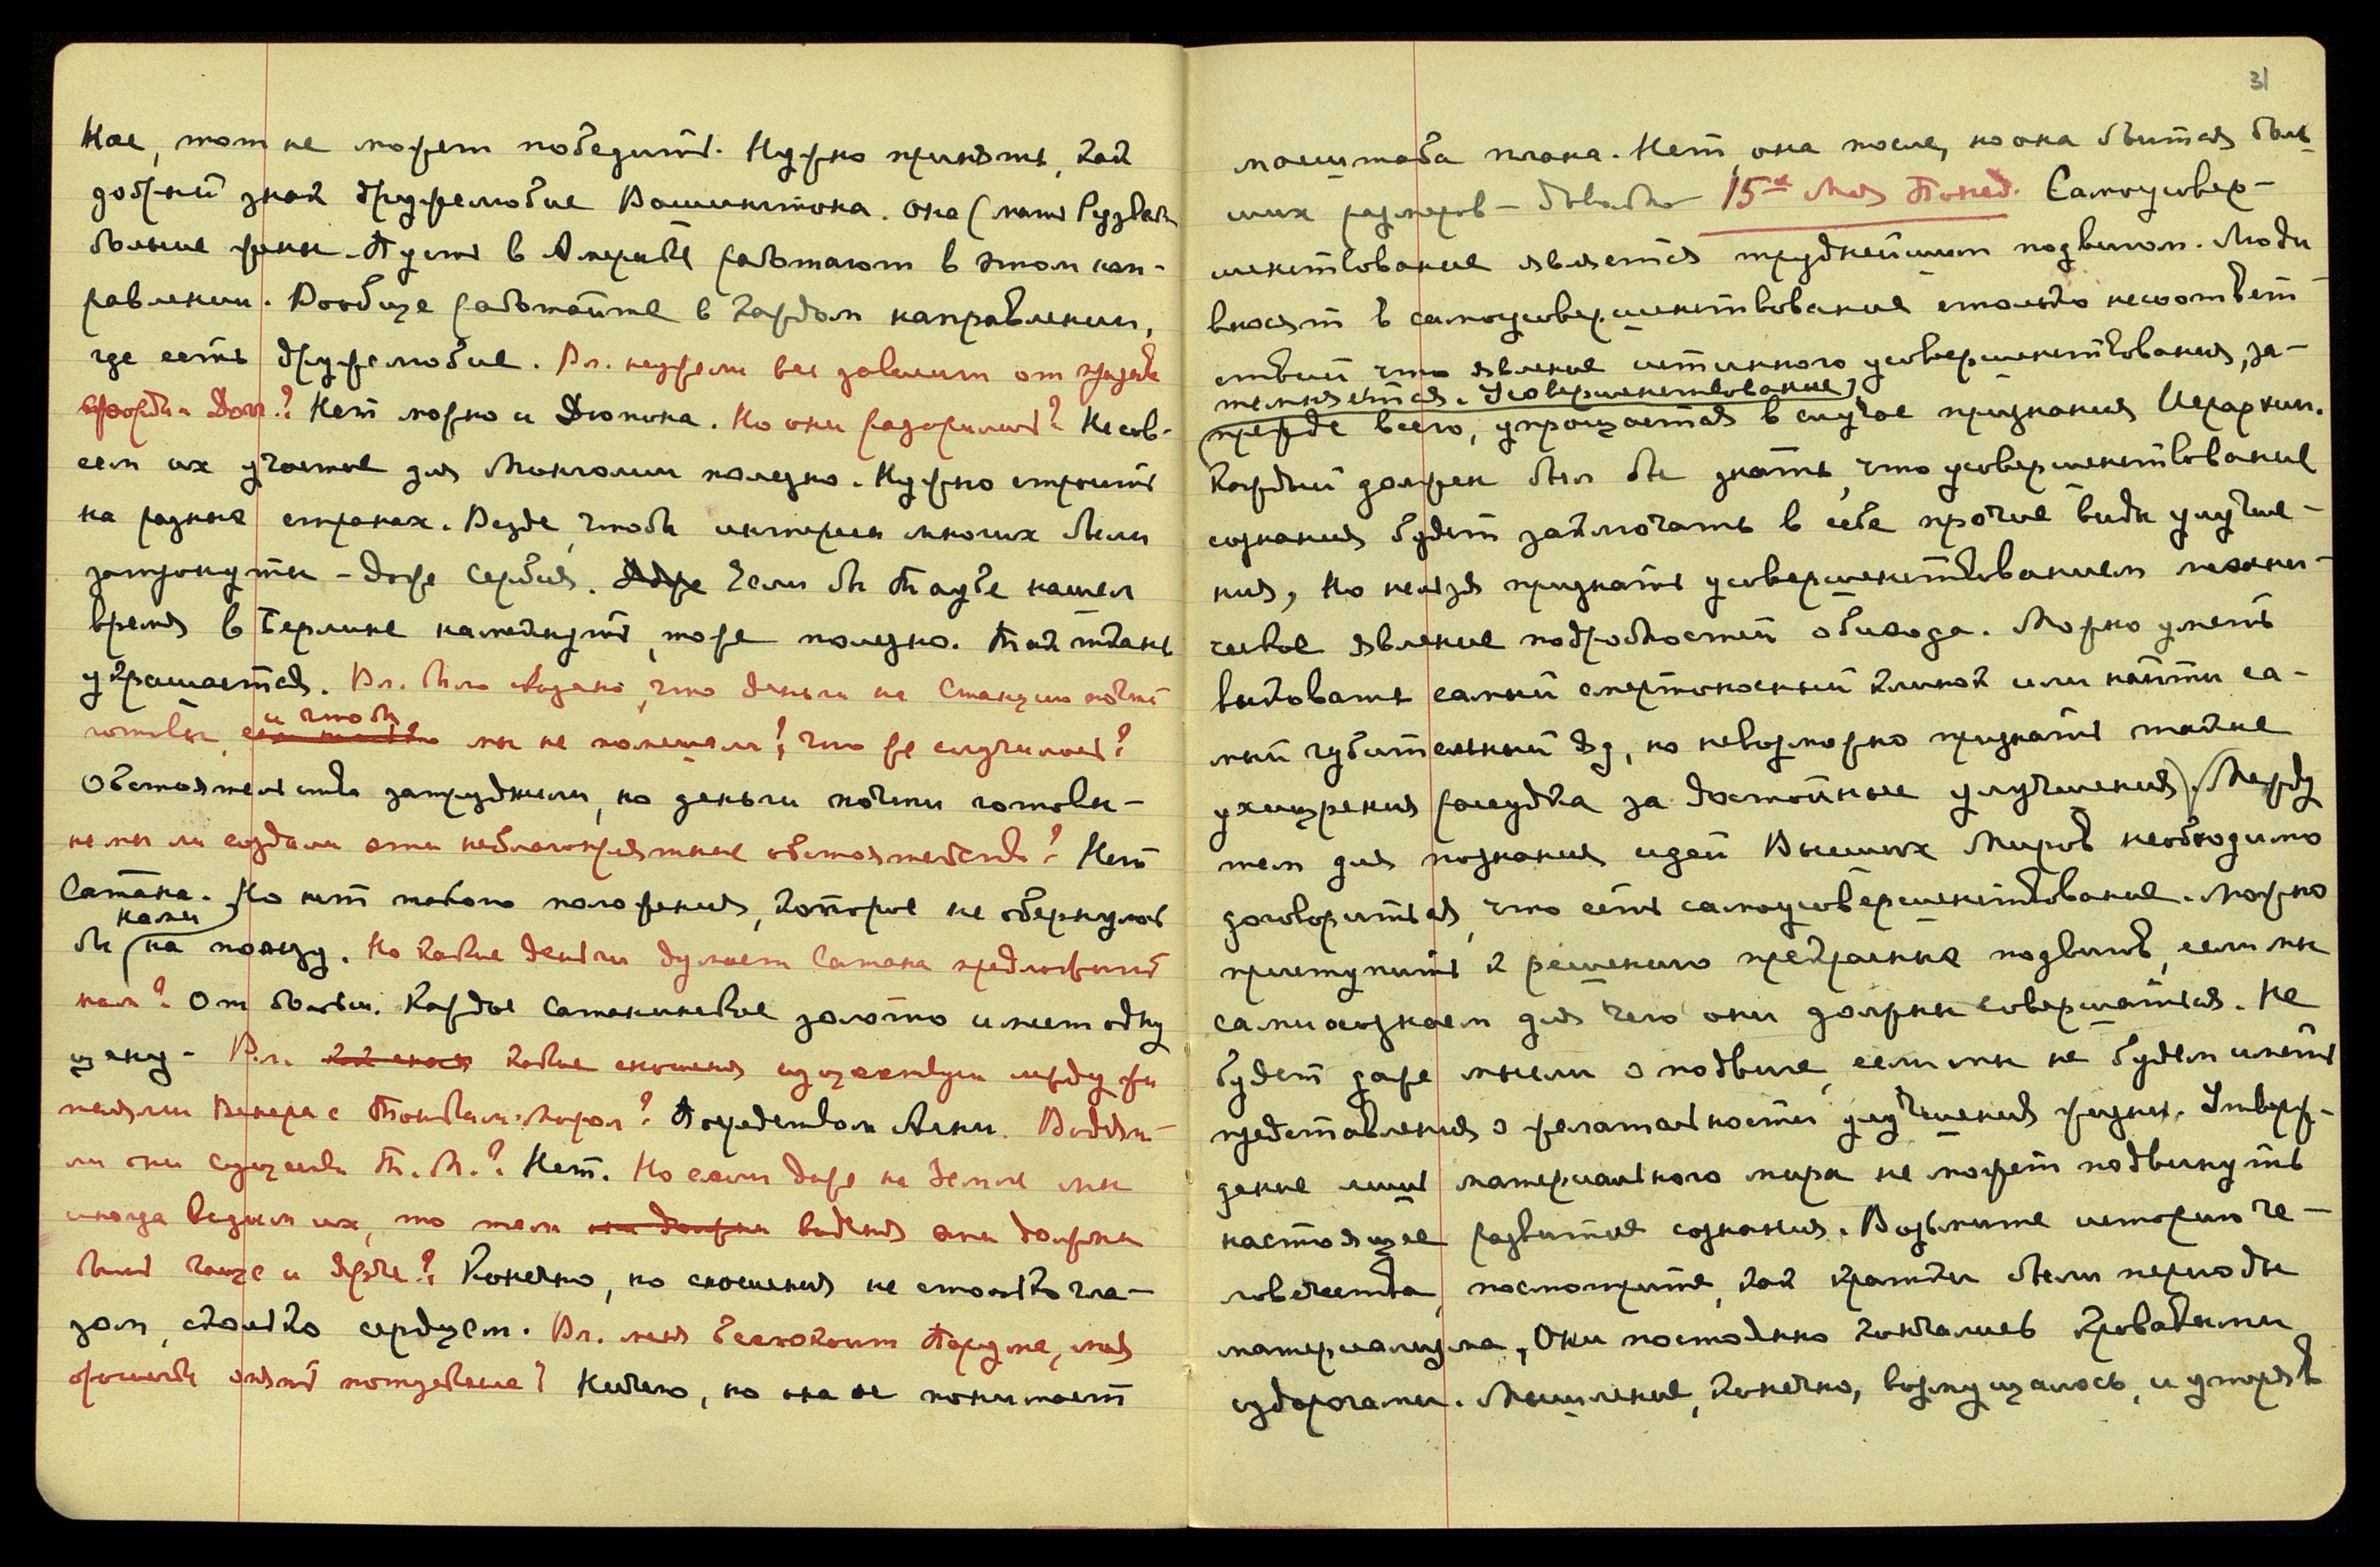 ное, тот не может победить. Нужно принять, как
добрый знак дружелюбие Вашингтона. Она (мать Рузвель
больше жены. Пусть в Америке работают в этом нап-
равлении. Вообще работайте в каждом направлении,
где есть дружелюбие. Вл. неужели все зависит от
Дом? Нет можно и Дюпона. Но они разорились? Не сов-
сем их участие для Монголии полезно. Нужно строить
на разных странах. Везде, чтобы интересы многих были
затронуты – даже Сербия. Даже Если бы Таубе нашел
время в Берлине намекнуть, тоже полезно. Так ткань
украшается. Вл. было сказано, что деньги на Станцию почти
готовы, и чтобы мы не помешали?, что же случилось?
Обстоятельства затруднили, но деньги почти готовы –
не мы ли создали эти неблагоприятные обстоятельства? Нет
Сатана. Но нет такого положения, которое не обернулось
нами
бы на пользу. Но какие деньги думает Сатана предложить
нам? От большев. Каждое Сатанинское золото имеет одну
цену – Вл. какие сношения существуют между жи
телями Венеры с Тонким Миром? Посредством Аскы. Видят
ли они существ Т. М.? Нет. Но если даже на Земле мы
иногда видим их, то там они должны видения эти должны
быть чаще и ярче? Конечно, но сношения не столько гла-
зом, сколько сердцем. Вл. меня беспокоит Порума, моя
опять потускнела? Ничего, но она не понимает
31
масштаба плана. Нет, она после, но она бытся боль
ших размеров – 15го Мая Понед. Самоусовер-
шенствование является труднейшим подвигом. Люди
вносят в самоусовершенствование столько несоответ
ствий что явление истинного усовершенствования, за-
темняется. Усовершенствование,
прежде всего, упрощается в случае признания Иерархии.
Каждый должен был бы знать, что усовершенствование
сознания будет заключать в себе прочие виды улучше-
ния, Но нельзя признать усовершенствованием механи-
ческое явление подробностей обихода. Можно уметь
выковать самый смертоносный клинок или найти са-
мый губительный яд, но невозможно признать такие
ухищрения рассудка за достойные улучшения). Между
тем для познания идей Высших Миров необходимо
договориться, что есть самоусовершенствование. Можно
приступить к решению прекрасных подвигов, если мы
сами осознаем для чего они должны совершаться. Не
будет даже мысли о подвиге, если мы не будем иметь
представления о желательности улучшения жизни. Утверж-
дение лишь материального мира не может подвинуть
настоящее развитие сознания. Возьмите историю че-
ловечества, посмотрите, как кратки были периоды
материализма, Они постоянно кончались кровавыми
судорогами. Мышление, конечно, возмущалось, и утеряв